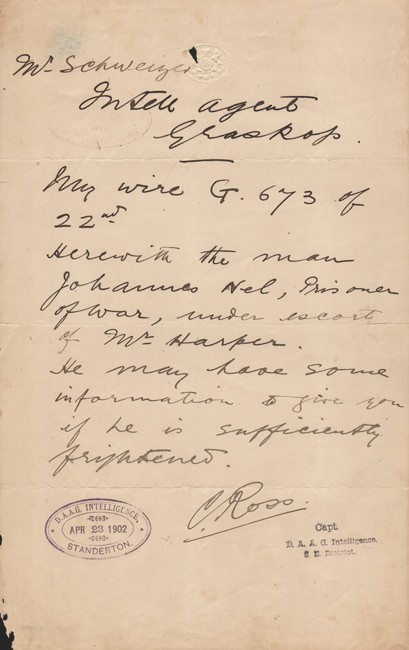 Mr Schweizer
Intell agent
Graskop.
My wire G. 673 of
22nd
Herewith the man
Johannes Nel, Prisoner
of war, under escort
of Mr Harper.
He may have some
information to give you
if he is sufficiently
frightened.
C. Ross.
Capt.
D. A. A. G. Intelligence,
S. E. District.
D.A.A.G. INTELLIGENCE,
APR 23 1902
STANDERTON.